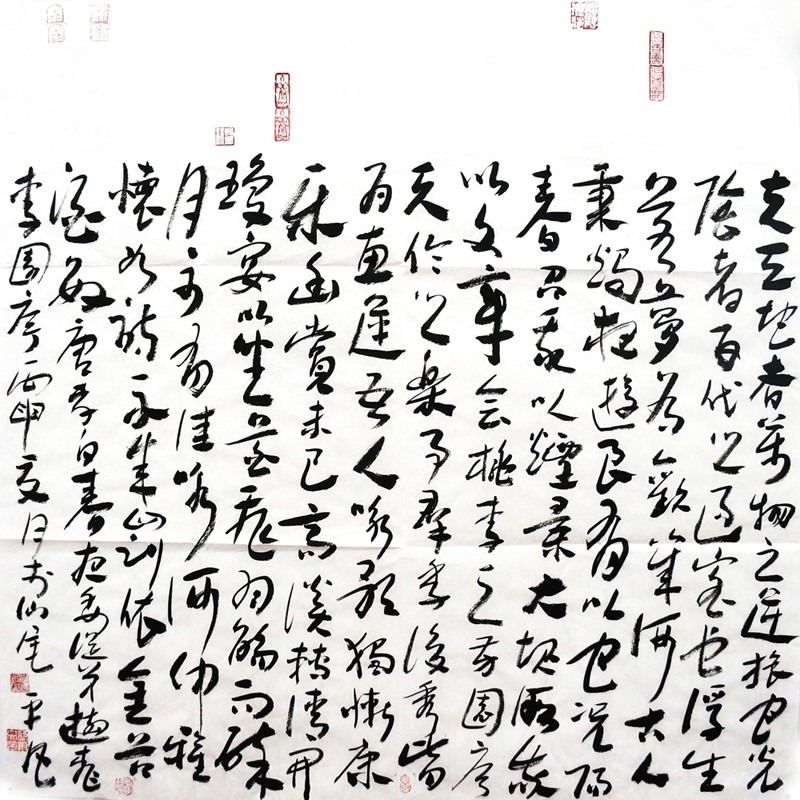 夫天地者萬物之逆旅也光
陰者百代之過客也浮生
若夢為歡幾何古人
秉燭夜遊良有以也況陽
春召我以煙景大塊假我
以文章會桃李之芳園序
天倫之樂事群季俊秀皆
為惠連吾人詠歌獨慚康
樂幽賞未已高談轉清開
瓊宴以坐花飛羽觴而醉
月不有佳詠何伸雅
懷如詩不成罰依金谷
酒數唐李白春夜宴從弟桃花
李園序丙申夏月書